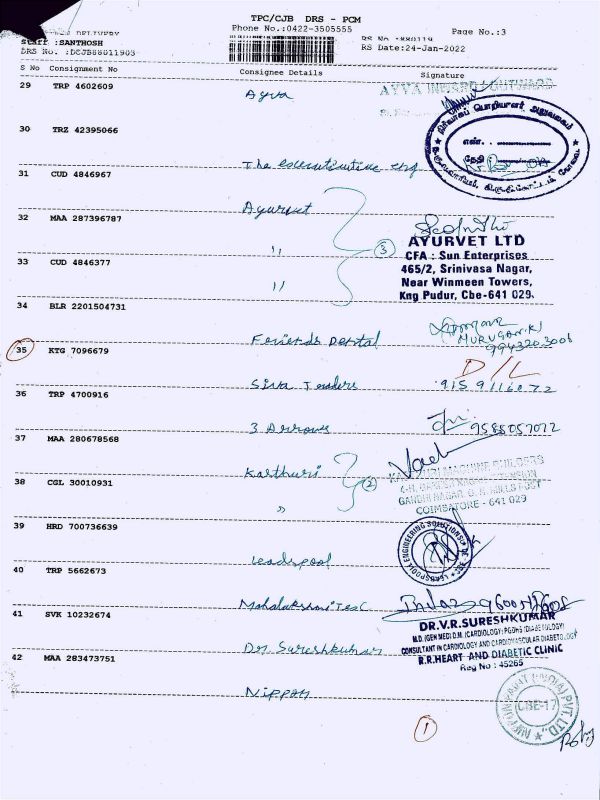 TPC/CJB DRS - PCM
Phone No.:0422-3505555
Page No.:3
DELIVERY
Staff :SANTHOSH
RS No :880119
DRS No. :DCJB88011903
RS Date:24-Jan-2022
S No Consignment No Consignee Details Signature
29 TRP 4602609 Ayva
AYVA INWARD / OUTWARD
30 TRZ 42395066 The executive eng
நிர்வாகப் பொறியாளர் அலுவலகம்
எண்.
தேதி
31 CUD 4846967 Ayurvet
32 MAA 287396787 "
33 CUD 4846377 "
3
AYURVET LTD
CFA : Sun Enterprises
465/2, Srinivasa Nagar,
Near Winmeen Towers,
Kng Pudur, Cbe-641 029.
34 BLR 2201504731 Friends Dental
MURUGAN.K
35 KTG 7096679 Siva Traders
D/L
9159116072
36 TRP 4700916 3 Arrows
9585057072
37 MAA 280678568 Karthuri
38 CGL 30010931 "
2
MACHINE BUILDERS
GANDHI NAGAR, G. N. MILLS POST
COIMBATORE - 641 029
39 HRD 700736639 Leadspool
ENGINEERING SOLUTIONS
40 TRP 5662673 Mahalakshmi Tesc
41 SVK 10232674 Dr. Sureshkumar
DR.V.R.SURESHKUMAR
M.D. (GEN MED) D.M. (CARDIOLOGY) PGDHS (DIABETOLOGY)
CONSULTANT IN CARDIOLOGY AND CARDIOVASCULAR DIABETOLOGY
R.R.HEART AND DIABETIC CLINIC
Reg No : 45265
42 MAA 283473751 Nippon
NIPPON PAINT (INDIA) PVT. LTD.
CBE-17
1